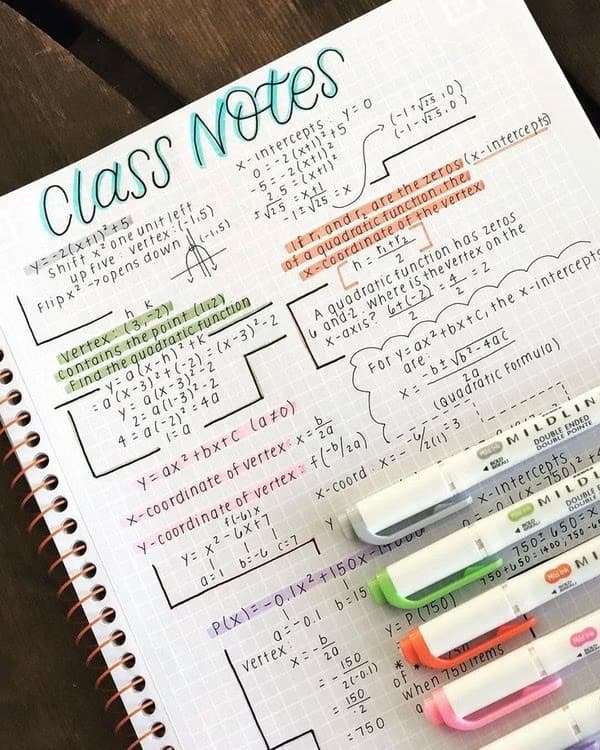 Class Notes
y=-2(x+1)²+5
shift x² one unit left
up five: vertex: (-1,5)
Flip x² → opens down
(-1,5)
x-intercepts: y=0
0=-2(x+1)²+5
-5=-2(x+1)²
2.5=(x+1)²
±√2.5=x+1
-1±√2.5=x
(-1+√2.5,0)
(-1-√2.5,0)
If r₁ and r₂ are the zeros (x-intercepts)
of a quadratic function, the
x-coordinate of the vertex
h = r₁+r₂/2
A quadratic function has zeros
6 and -2. where is the vertex on the
x-axis? 6+(-2)/2 = 4/2 = 2
h k
vertex: (3,-2)
contains the point (1,2)
Find the quadratic function
y=a(x-h)²+k
=a(x-3)²+(-2)=(x-3)²-2
y=a(x-3)²-2
2=a(1-3)²-2
4=a(-2)²=4a
1=a
For y=ax²+bx+c, the x-intercepts
are:
x= -b±√b²-4ac/2a
(Quadratic Formula)
y=ax²+bx+c (a≠0)
x-coordinate of vertex: x=b/2a
y-coordinate of vertex: f(-b/2a)
f(-b/x)
y=x²-6x+7
a=1 b=-6 c=7
x-coord: x=--6/2(1)=3
y
P(x)=-0.1x²+150x-1
a=-0.1 b=15
vertex:
x=-b/2a
=-150/2(-0.1)
=150/.2
=750
x-intercepts
=-0.1(x-750)²+
750±650=x
750+650=1400, 750-65
y=P(750)
of
when 750 items
a
MILDLIN
DOUBLE ENDED
DOUBLE POINTE
MILDL
DOUBLE
DOUBLE
Mild Ink
BOLD
BISEAU
MILD
Mild Ink
BOLD
BISEAU
M
Mild Ink
BOLD